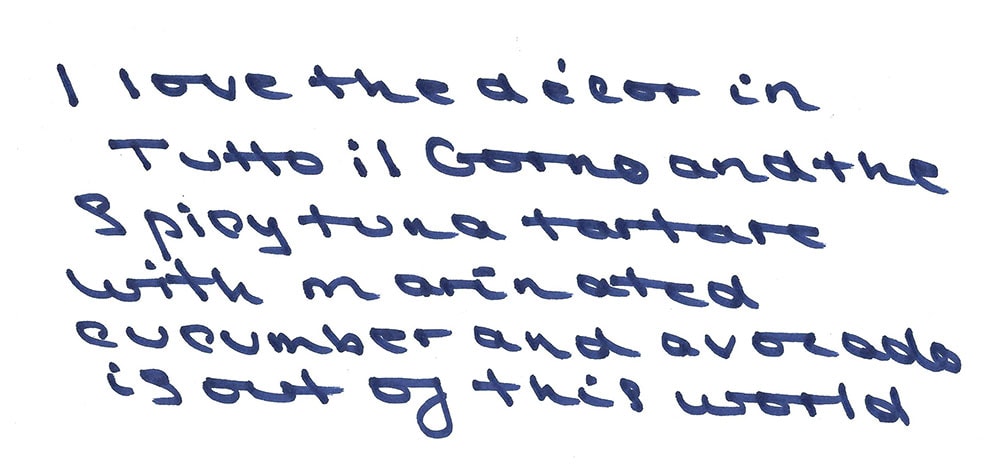 I love the décor in
Tutto il Gorno and the
Spicy tuna tartare
with marinated
cucumber and avocado
is out of this world